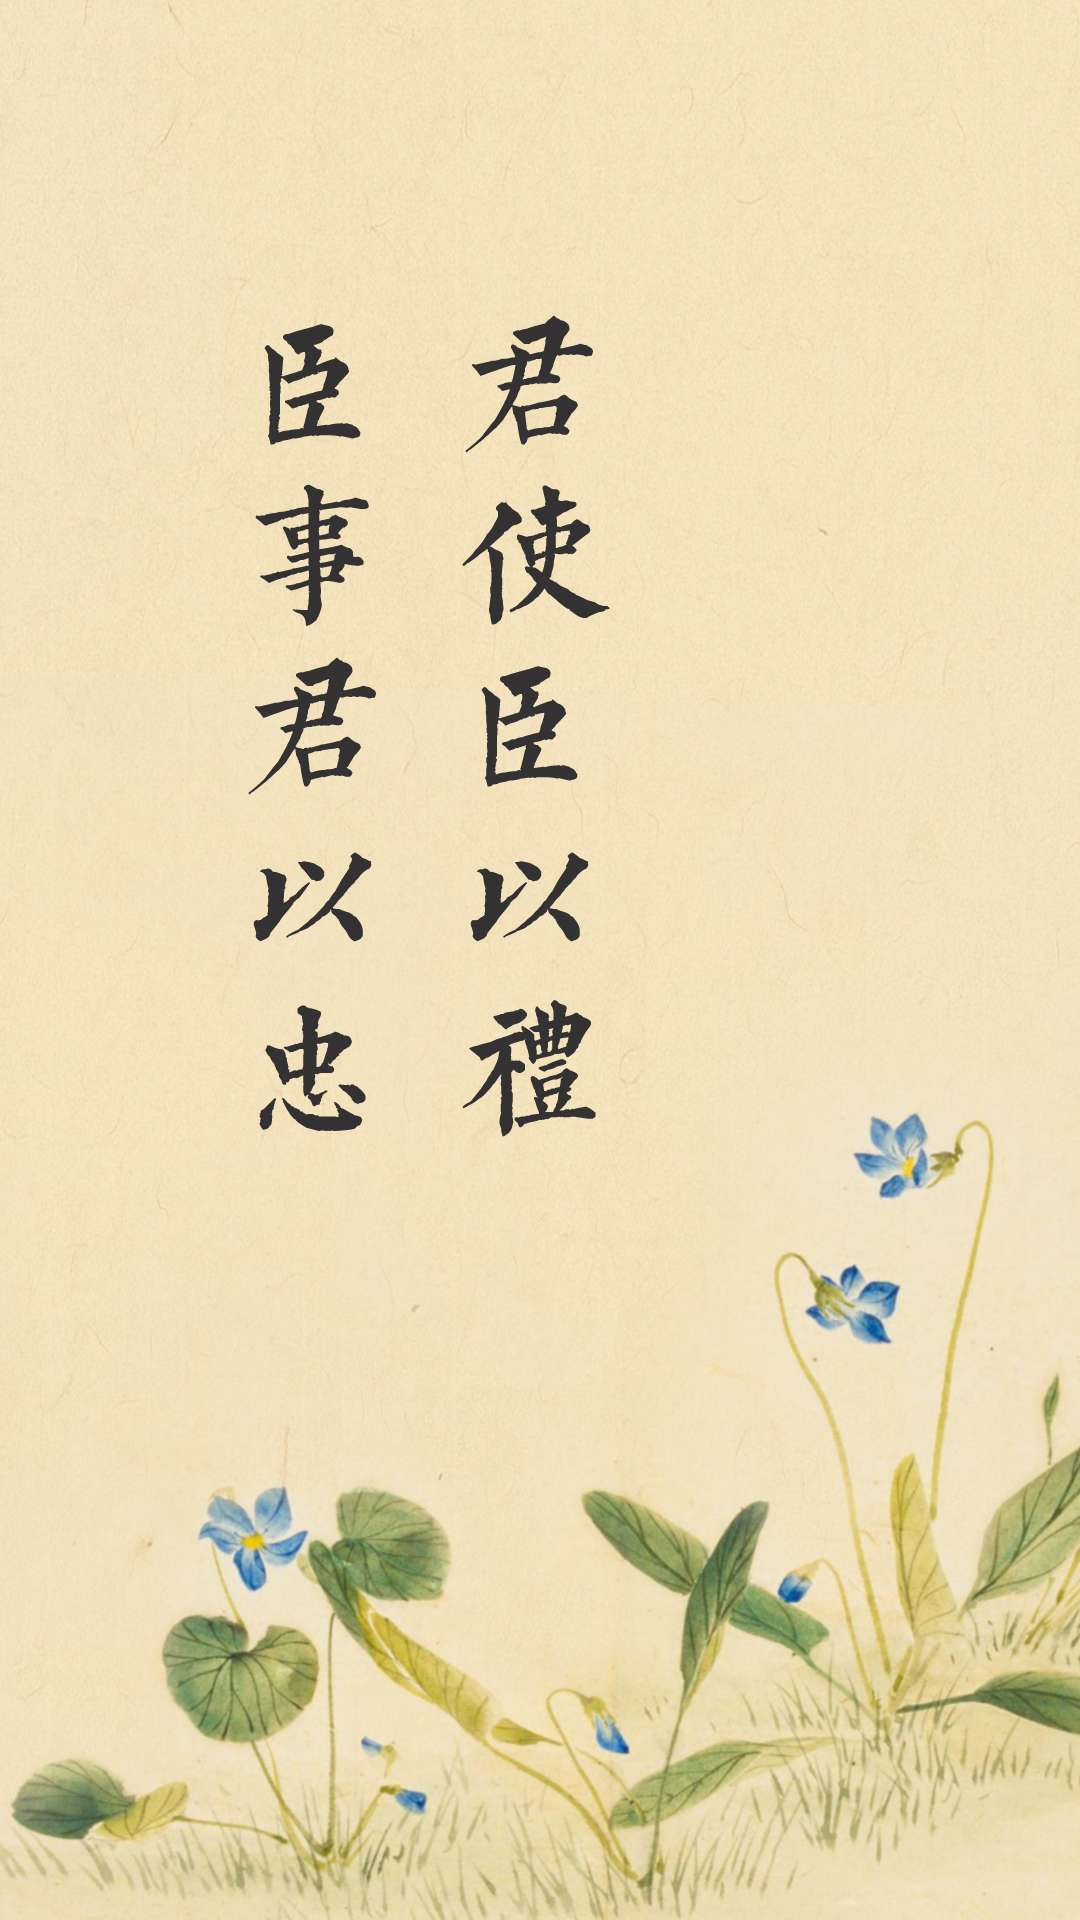 君使臣以禮
臣事君以忠